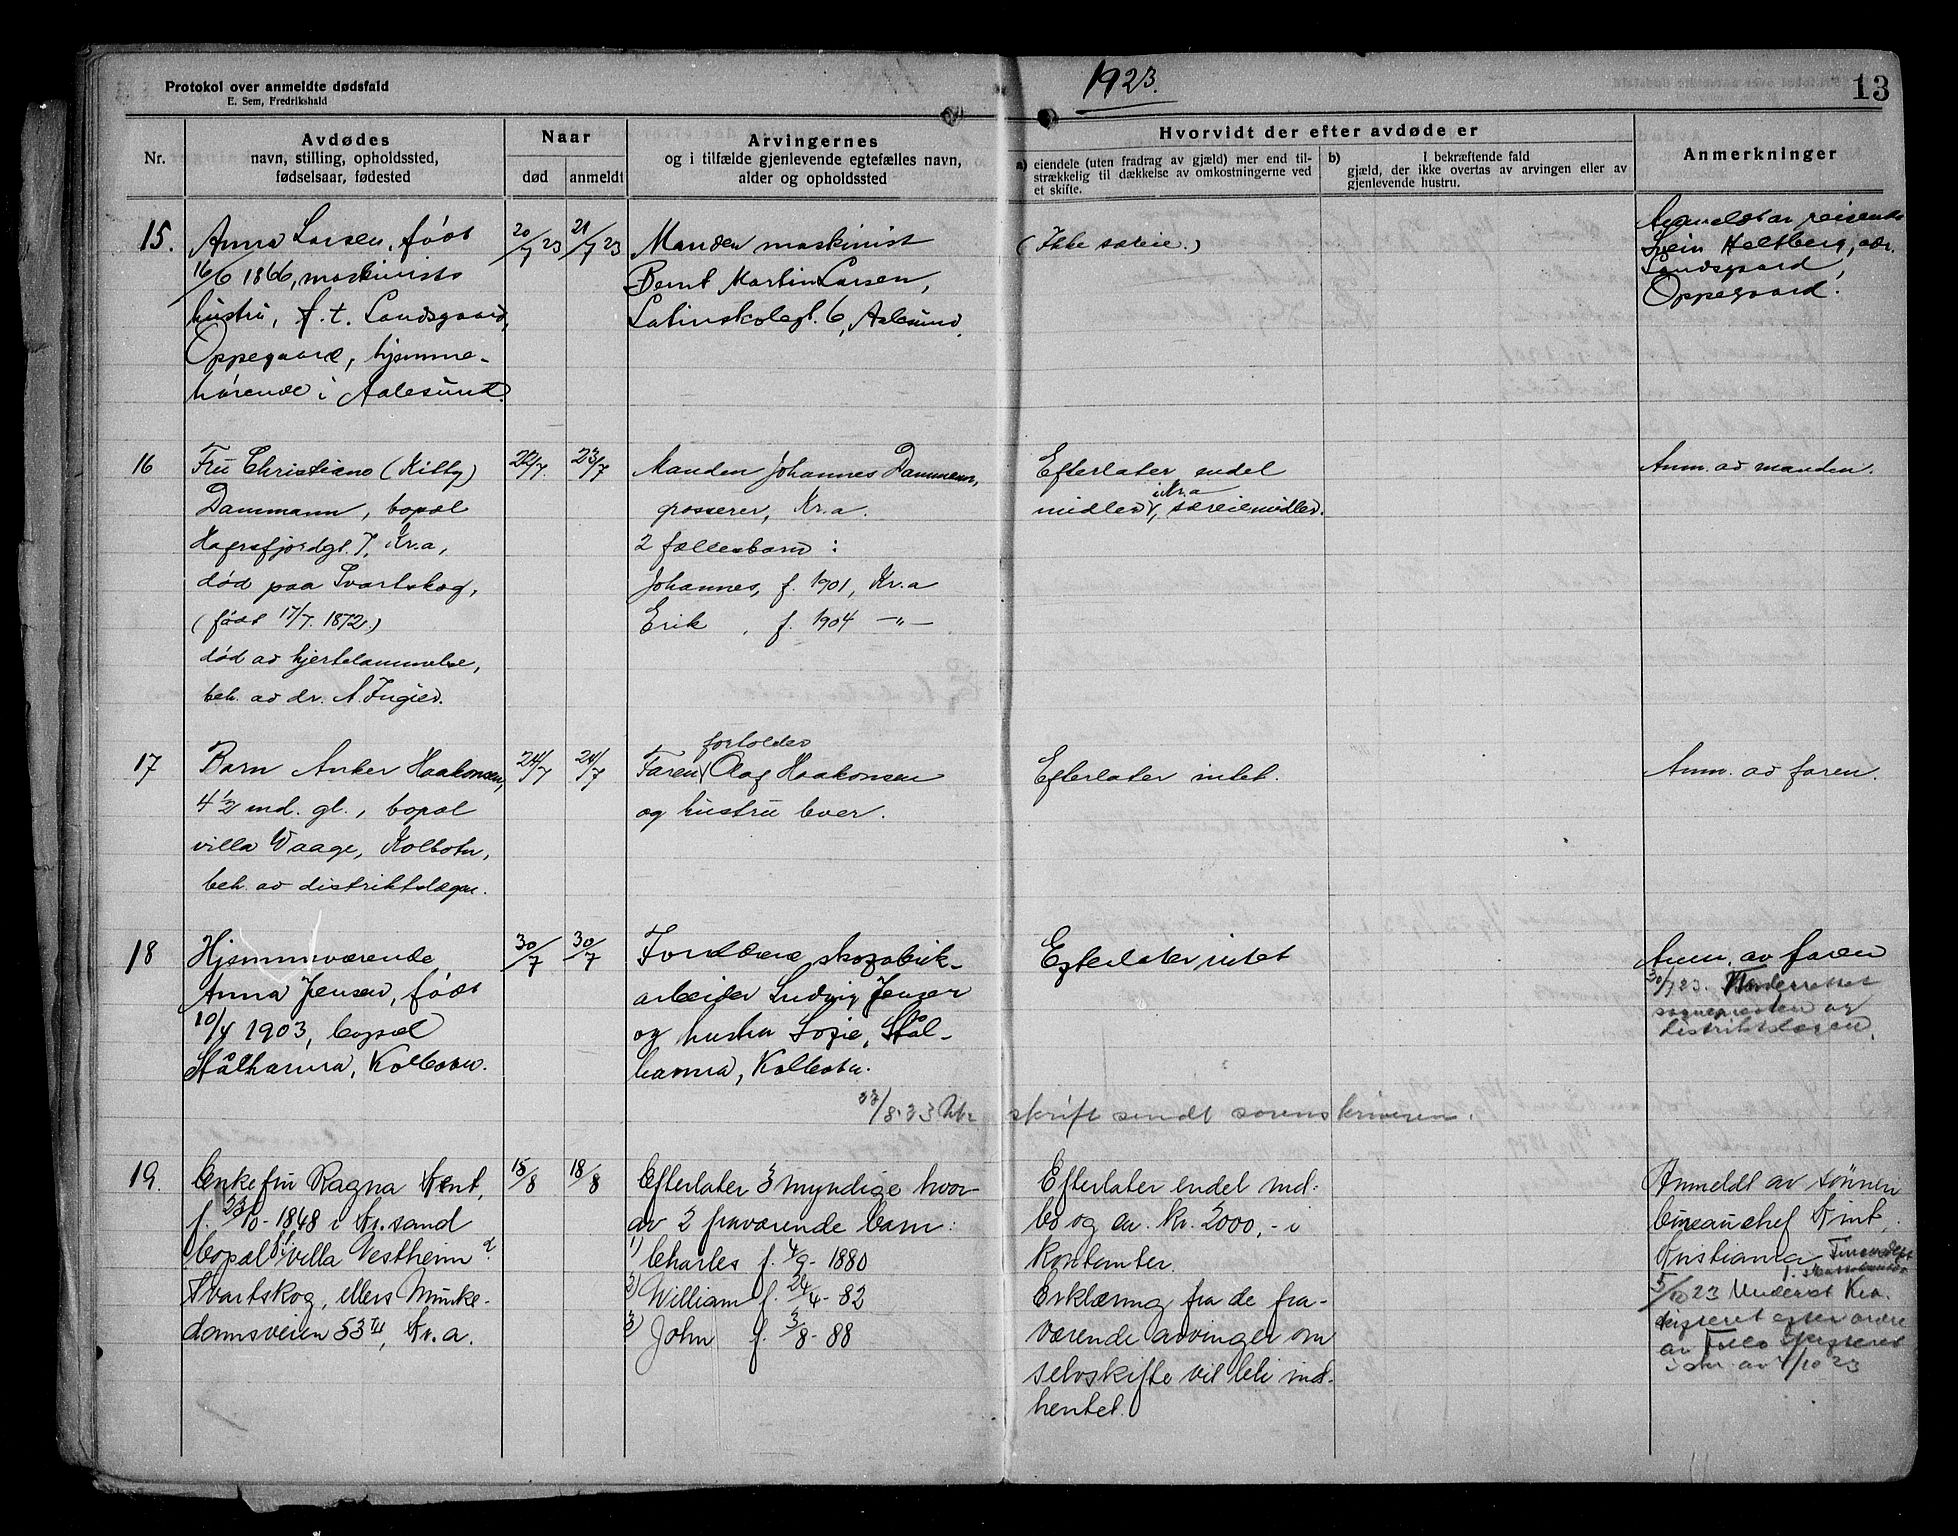 Protokol over anmeldte dødsfald
E. Sem, Fredrikshald
1923.
13
Nr.
Avdødes
navn, stilling, opholdssted,
fødselsaar, fødested
Naar
død
anmeldt
Arvingernes
og i tilfælde gjenlevende egtefælles navn,
alder og opholdssted
Hvorvidt der efter avdøde er
a) eiendele (uten fradrag av gjæld) mer end til-
strækkelig til dækkelse av omkostningerne ved
et skifte.
b) I bekræftende fald
gjæld, der ikke overtas av arvingen eller av
gjenlevende hustru.
Anmerkninger
15.
Anna Larsen, født
16/6 1866, maskinists
hustru, f. t. Sandsgaard,
Oppegaard, hjemme-
hørende i Aalesund.
20/7 23
21/7 23
Manden maskinist
Bernt Martin Larsen,
Latinskolegt. 6, Aalesund.
(Ikke særeie.)
Anmeldt av reisende
Svein Heltberg, adr.
Sandsgaard,
Oppegaard.
16
Fru Christiane (Kitty)
Dammann, bopæl
Hafrsfjordgt. 7, Kr.a,
død paa Svartskog,
(født 17/7. 1872.)
død av hjertelammelse,
beh. av dr. A. Ingier.
22/7.
23/7
Manden Johannes Dammann,
grosserer, Kr.a.
2 fællesbarn :
Johannes, f. 1901, Kr.a
Erik , f. 1904 -"-
Efterlater endel
i Kr.a
midler, særeiemidler.
Anm. av manden.
17
Barn Anker Haakonsen,
4 1/2 md. gl., bopæl
villa Waage, Kolbotn,
beh. av distriktslægen.
24/7
24/7
forfolder
Faren Olaf Haakonsen
og hustru lever.
Efterlater intet.
Anm. av faren.
18
Hjemmeværende
Anna Jensen, født
10/4 1903, bopæl
Stålhaima, Kolbotn.
30/7
30/7
Forældrene skofabrik-
arbeider Ludvig Jensen
og hustru Sofie, Stål-
haima, Kolbotn.
Efterlater intet
Anm. av faren
30/7 23. Underrettet
sogneprsten og
distriktslægen.
22/8.23 Utskrift sendt sorenskriveren.
19.
Enkefru Ragna Kint,
f. 23/10 - 1848 i Kr.sand
bopæl villa Vestheim
Svartskog, ellers Munke-
damsveien 53 III, Kr.a.
15/8
18/8
Efterlater 3 myndige hvor-
av 2 fraværende barn:
1) Charles f. 4/9 - 1880
2) William f. 24/4 - 82
3) John f. 3/8 - 88
Efterlater endel ind-
bo og ca. kr. 2000,- i
kontanter.
Erklæring fra de fra-
værende arvinger om
selvskifte vil bli ind-
hentet.
Anmeldt av sønnen
bureauchef Kint,
Kristiania, Finansdept
5/10 23 Underret Kra.
skifteret efter ordre
av Follo skifteret
i skr. av 4/10 23